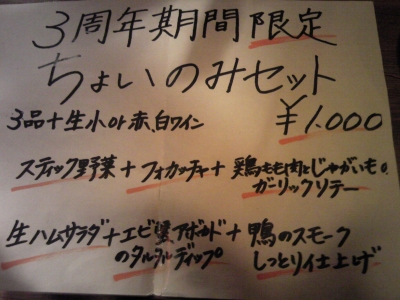 3周年期間限定
ちょいのみセット
3品+生小or赤、白ワイン ¥1.000
スティック野菜+フォカッチャ+鶏もも肉とじゃがいもの
ガーリックソテー
生ハムサラダ+エビとアボカド+鴨のスモーク
のタルタルディップ しっとり仕上げ